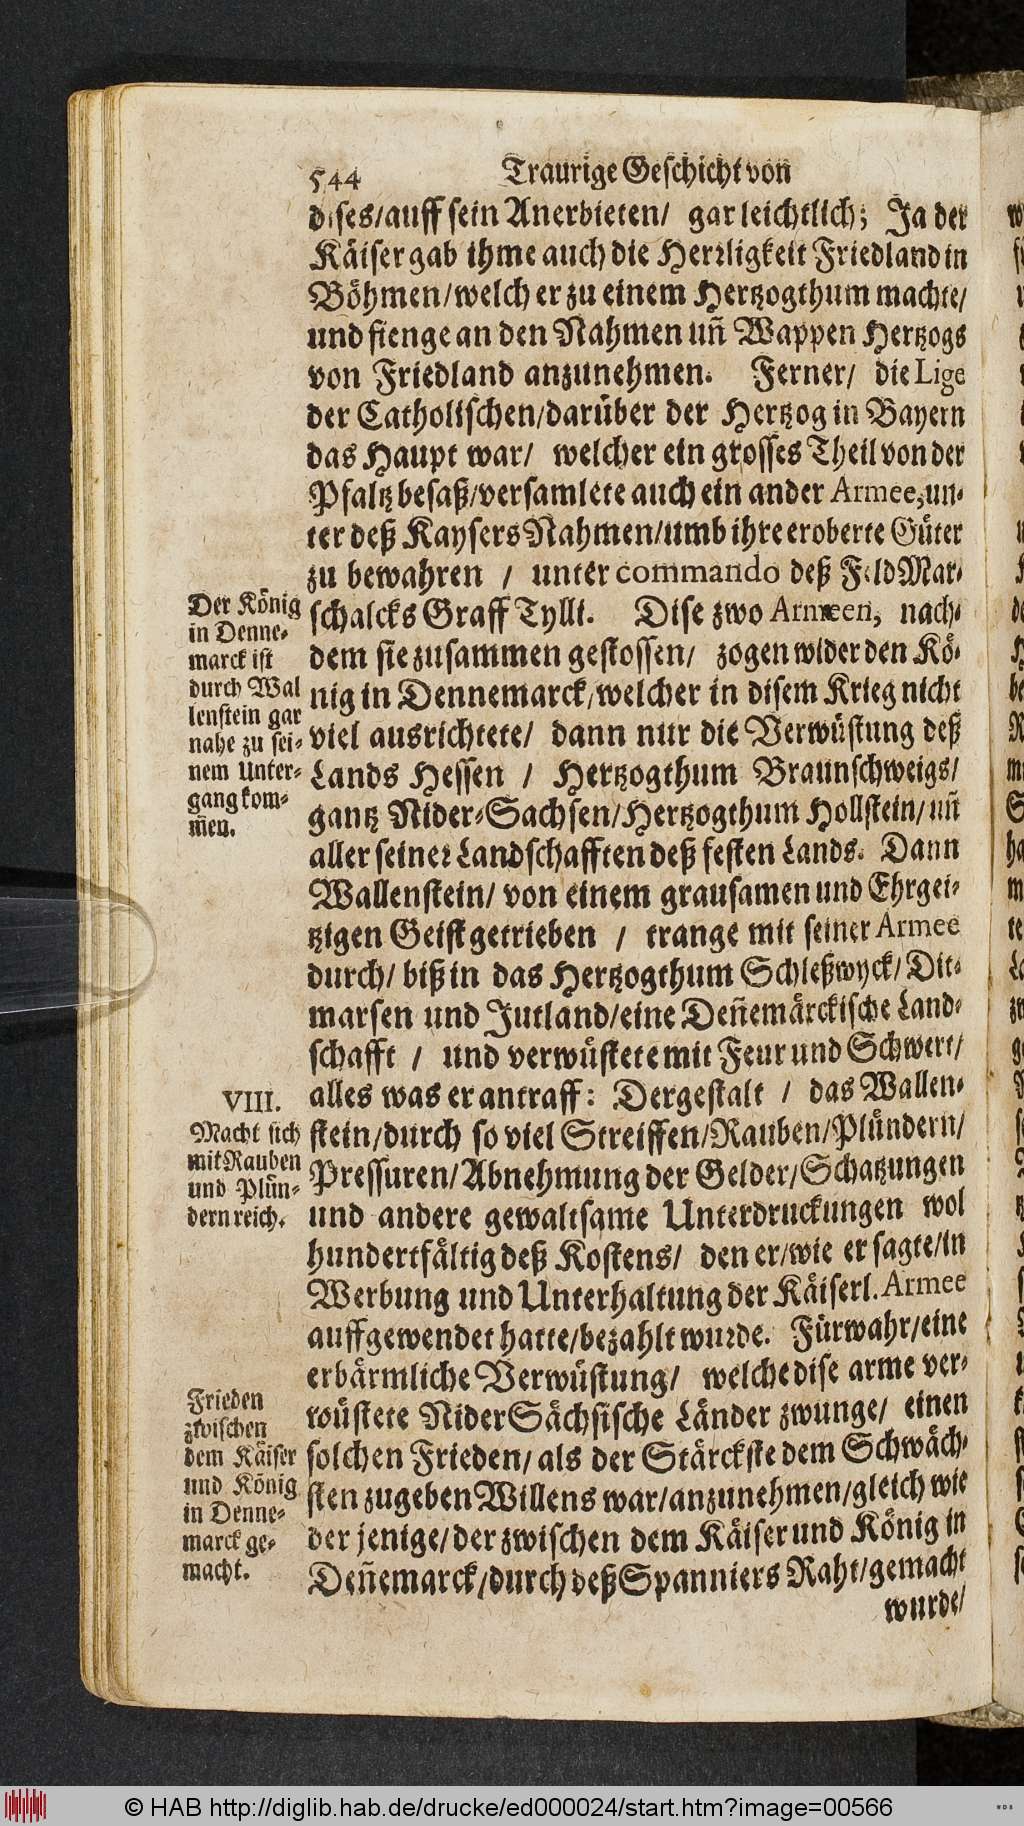 544 Traurige Geschicht von
dises/auff sein Anerbieten/ gar leichtlich; Ja der
Käiser gab ihme auch die Herꝛligkeit Friedland in
Böhmen/welch er zu einem Hertzogthum machte/
und fienge an den Nahmen uñ Wappen Hertzogs
von Friedland anzunehmen. Ferner/ die Lige
der Catholischen/darüber der Hertzog in Bayern
das Haupt war/ welcher ein grosses Theil von der
Pfaltz besaß/versamlete auch ein ander Armee, un-
ter deß Kaysers Nahmen/umb ihre eroberte Güter
zu bewahren / unter commando deß Feld Mar-
schalcks Graff Tylli. Dise zwo Armeen, nach-
dem sie zusammen gestossen/ zogen wider den Kö-
nig in Dennemarck/welcher in disem Krieg nicht
viel ausrichtete/ dann nur die Verwüstung deß
Lands Hessen / Hertzogthum Braunschweigs/
gantz Nider-Sachsen/Hertzogthum Hollstein/uñ
aller seineꝛ Landschafften deß festen Lands. Dann
Wallenstein/ von einem grausamen und Ehrgei-
tzigen Geist getrieben / trange mit seiner Armee
durch/ biß in das Hertzogthum Schleßwyck/ Dit-
marsen und Jutland/eine Deñemärckische Land-
schafft / und verwüstete mit Feur und Schwert/
alles was er antraff: Dergestalt / das Wallen-
stein/durch so viel Streiffen/Rauben/Plündern/
Pressuren/Abnehmung der Gelder/Schatzungen
und andere gewaltsame Unterdruckungen wol
hundertfältig deß Kostens/ den er/wie er sagte/in
Werbung und Unterhaltung der Käiserl. Armee
auffgewendet hatte/bezahlt wuꝛde. Fürwahr/eine
erbärmliche Verwüstung/ welche dise arme ver-
wüstete Nider Sächsische Länder zwunge/ einen
solchen Frieden/ als der Stärckste dem Schwäch-
sten zugeben Willens war/anzunehmen/gleich wie
der jenige/der zwischen dem Käiser und König in
Deñemarck/durch deß Spanniers Raht/gemacht
wurde/
Der König
in Denne-
marck ist
durch Wal
lenstein gar
nahe zu sei-
nem Unter-
gang kom-
m̃en.
VIII.
Macht sich
mit Rauben
und Plün-
dern reich.
Frieden
zwischen
dem Käiser
und König
in Denne-
marck ge-
macht.
© HAB http://diglib.hab.de/drucke/ed000024/start.htm?image=00566